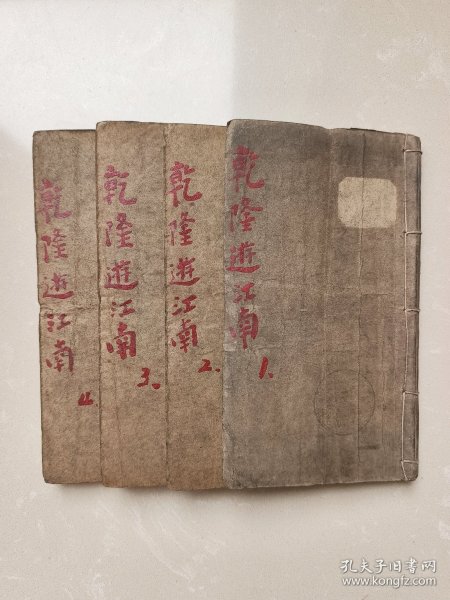 乾隆遊江南
1.
乾隆遊江南
2.
乾隆遊江南
3.
乾隆遊江南
4.
孔夫子旧书网
www.kongfz.com